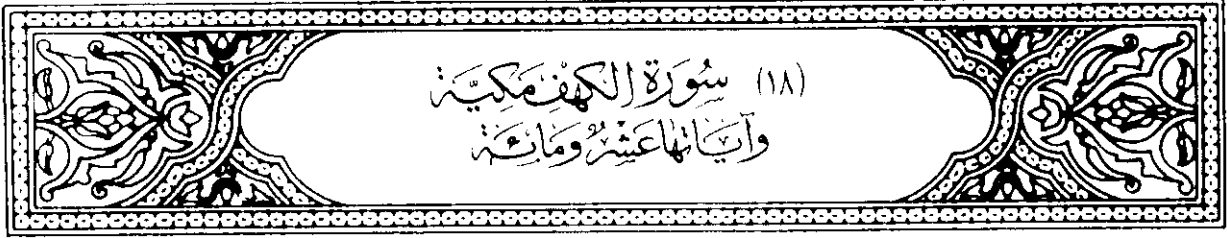 (١٨) سُورَة الكهف مَكيَّة
وآيَاتها عَشْرٌ وَمَائة